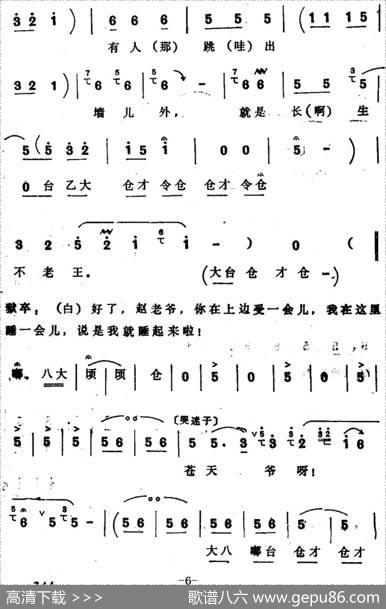 3 2 i) | 6 6 6 | 5 5 5 | (1 1 1 5 |
有人(那) 跳(哇)出
3 2 1) | 6 6 6 - | 6 6 5 5 5
墙儿外， 就是长(啊)生
5 (5 3 2 | 1 5 1 | 0 0 | 5 -) |
0 台 乙大 仓才 令仓 仓才 令仓
3 2 5 2 1 i i - ) 0 ( |
不老王。 (大台 仓 才 仓 -)
狱卒：(白)好了，赵老爷，你在上边受一会儿，我在这里
睡一会儿，说是我就睡起来啦！
嘟。八大 | 顷 | 顷 仓 | 0 5 | 0 5 | 0 5 | 0 5 |
〔哭迷子〕
5 | 5 | 5 | 5 6 | 5 6 | 5 5. 3 3 2 i 6
苍天 爷呀！
5 5 - (5 6 | 5 6 | 5 6 | 5 6 | 5 | 5 |
大八 嘟台 仓才 仓才
-6-
高清下载 >>>
歌谱八六 www.gepu86.com